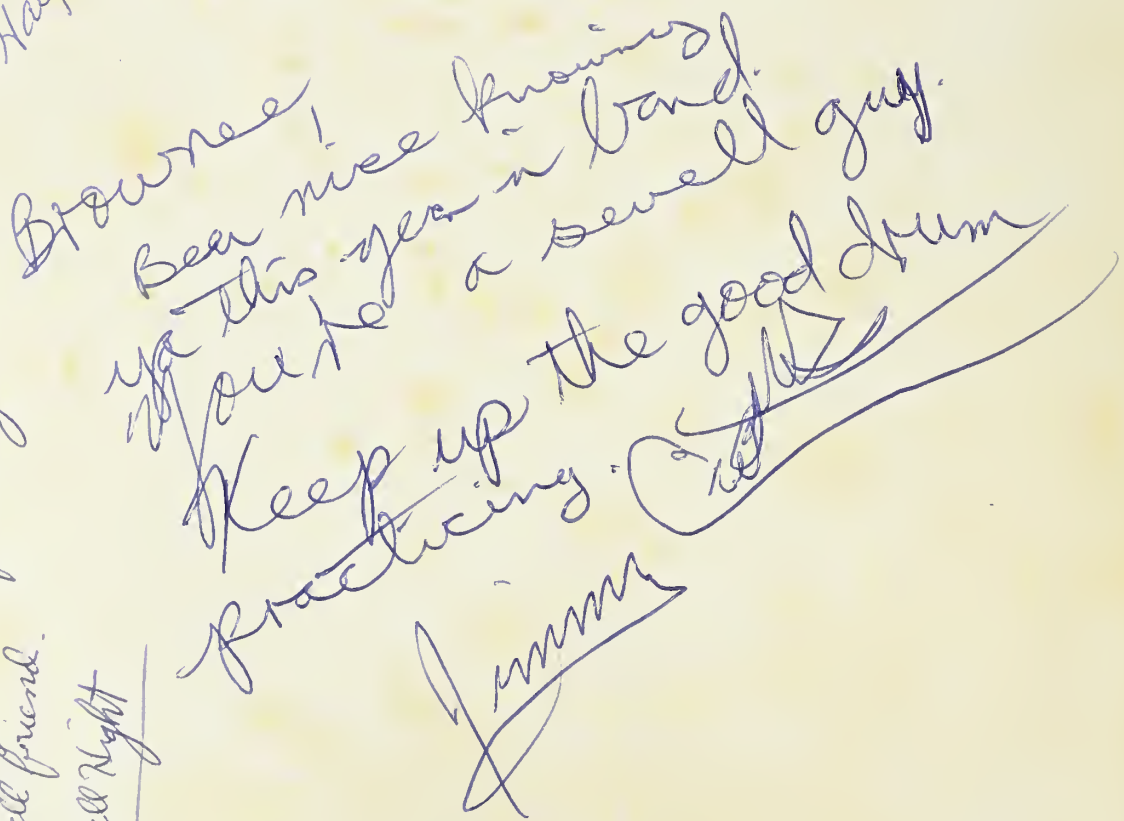 Brownee,
Been nice knowing
ya this year in band.
You're a swell guy.
Keep up the good drum
practicing.
Jimmy
friend.
Hight